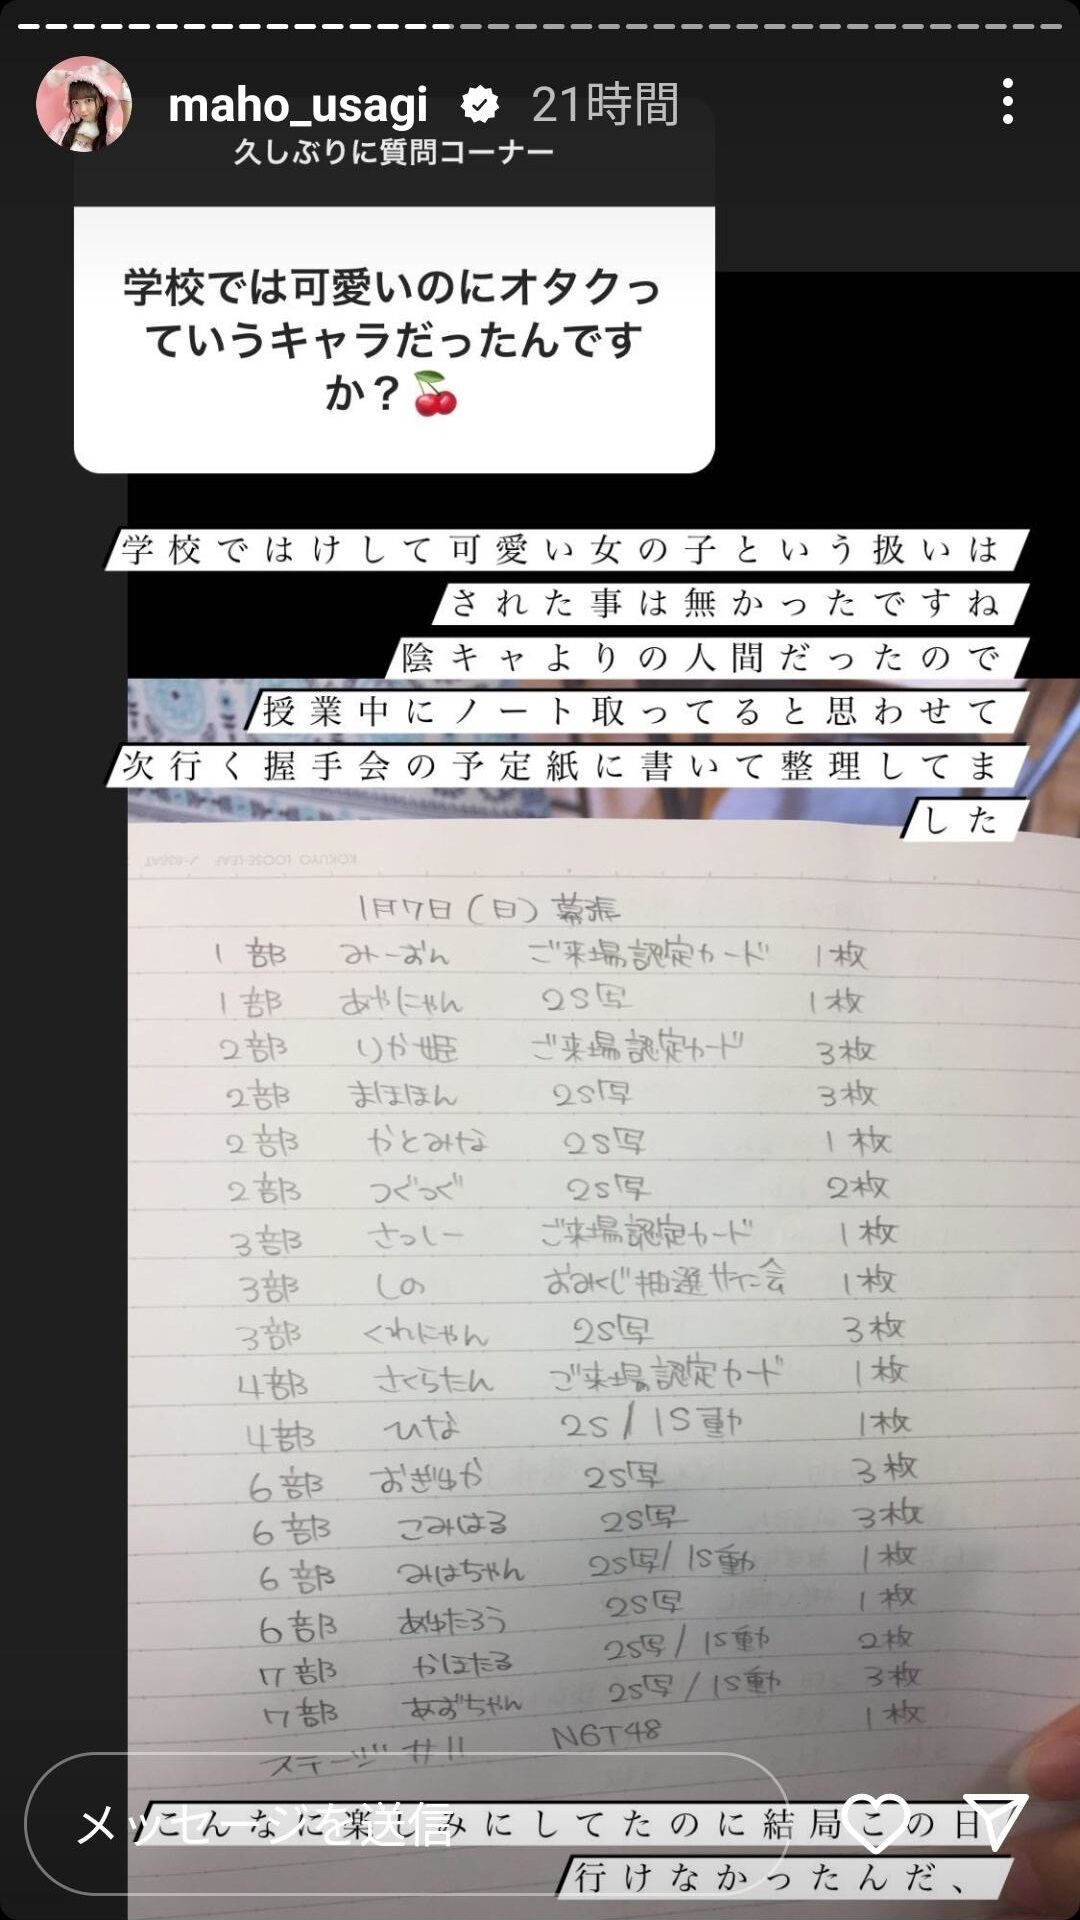 maho_usagi 21時間
久しぶりに質問コーナー
学校では可愛いのにオタクっ
ていうキャラだったんです
か？🍒
学校ではけして可愛い女の子という扱いは
された事は無かったですね
陰キャよりの人間だったので
授業中にノート取ってると思わせて
次行く握手会の予定紙に書いて整理してま
した
KOKUYO LOOSE-LEAF
1月7日（日）幕張
1部 みーおん ご来場認定カード 1枚
1部 あやにゃん 2S写 1枚
2部 りか姫 ご来場認定カード 3枚
2部 まほほん 2S写 3枚
2部 かとみな 2S写 1枚
2部 つぐつぐ 2S写 2枚
3部 さっしー ご来場認定カード 1枚
3部 しの おみくじ抽選サイン会 1枚
3部 くれにゃん 2S写 3枚
4部 さくらたん ご来場認定カード 1枚
4部 ひな 2S/1S動 1枚
6部 おぎゆか 2S写 3枚
6部 こみはる 2S写 3枚
6部 みはちゃん 2S写/1S動 1枚
6部 あゆたろう 2S写 1枚
7部 かほたる 2S写/1S動 2枚
7部 あずちゃん 2S写/1S動 3枚
ステージ #11 NGT48 1枚
メッセージを送信
こんなに楽しみにしてたのに結局この日
行けなかったんだ、